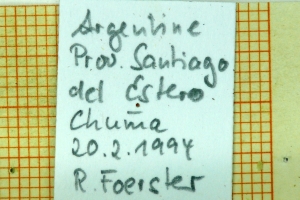 Argentine
Prov. Santiago
del Estero
Chuña
20.2.1994
R. Foerster